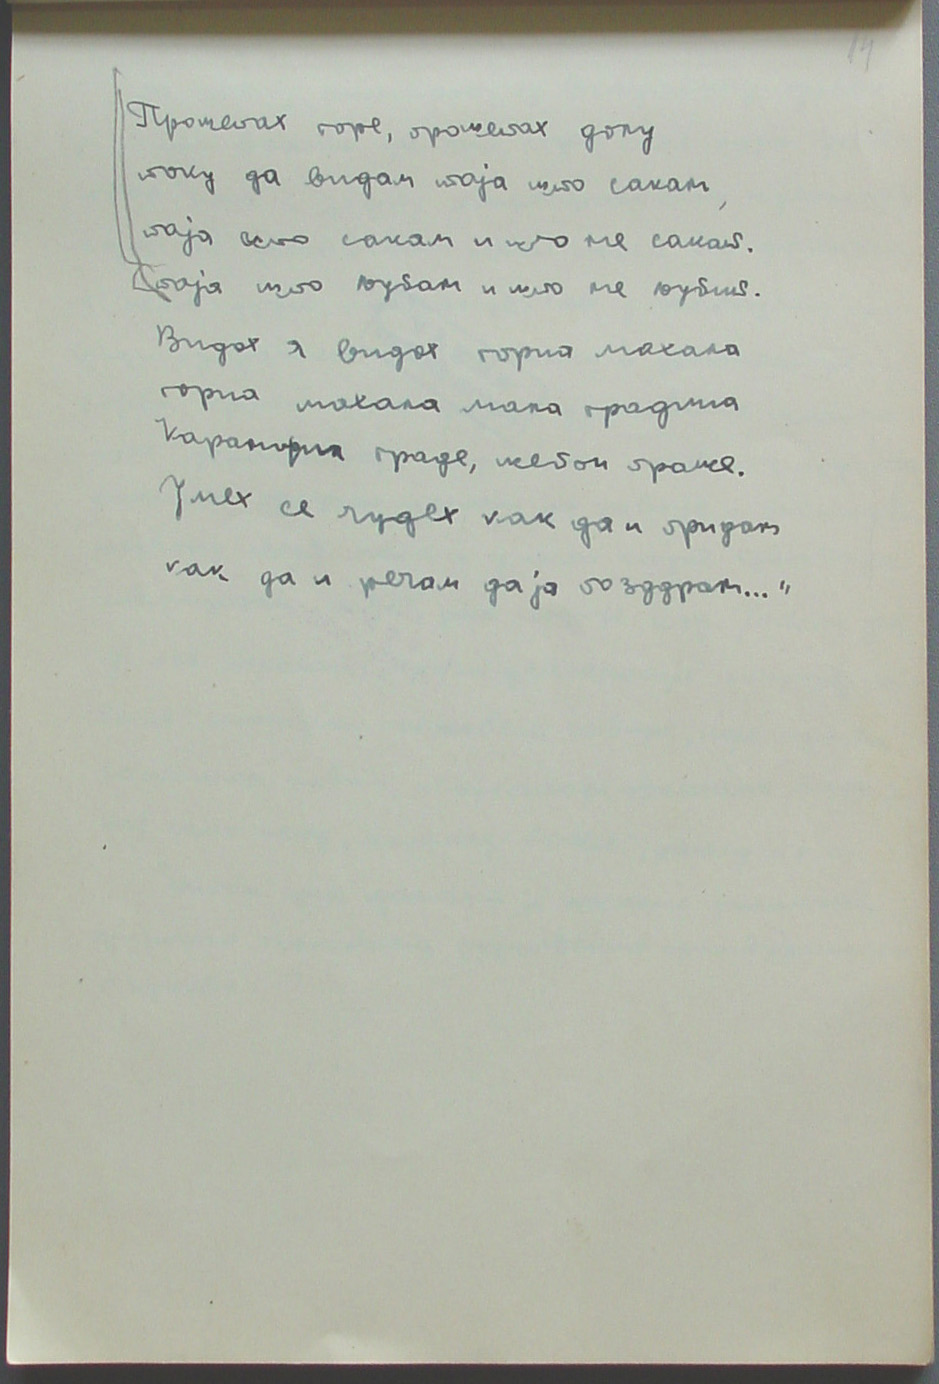 14
Прошетах горе, прошетах долу
току да видам таја што сакам,
таја што сакам и що ме сакат.
таја што љубам и што ме љубит.
Видох я видох горна махала
горна махала мала градина
Каранфил граде, шебои праше.
Умех се чудех как да и придам
как да и речам да ја поздрам..."